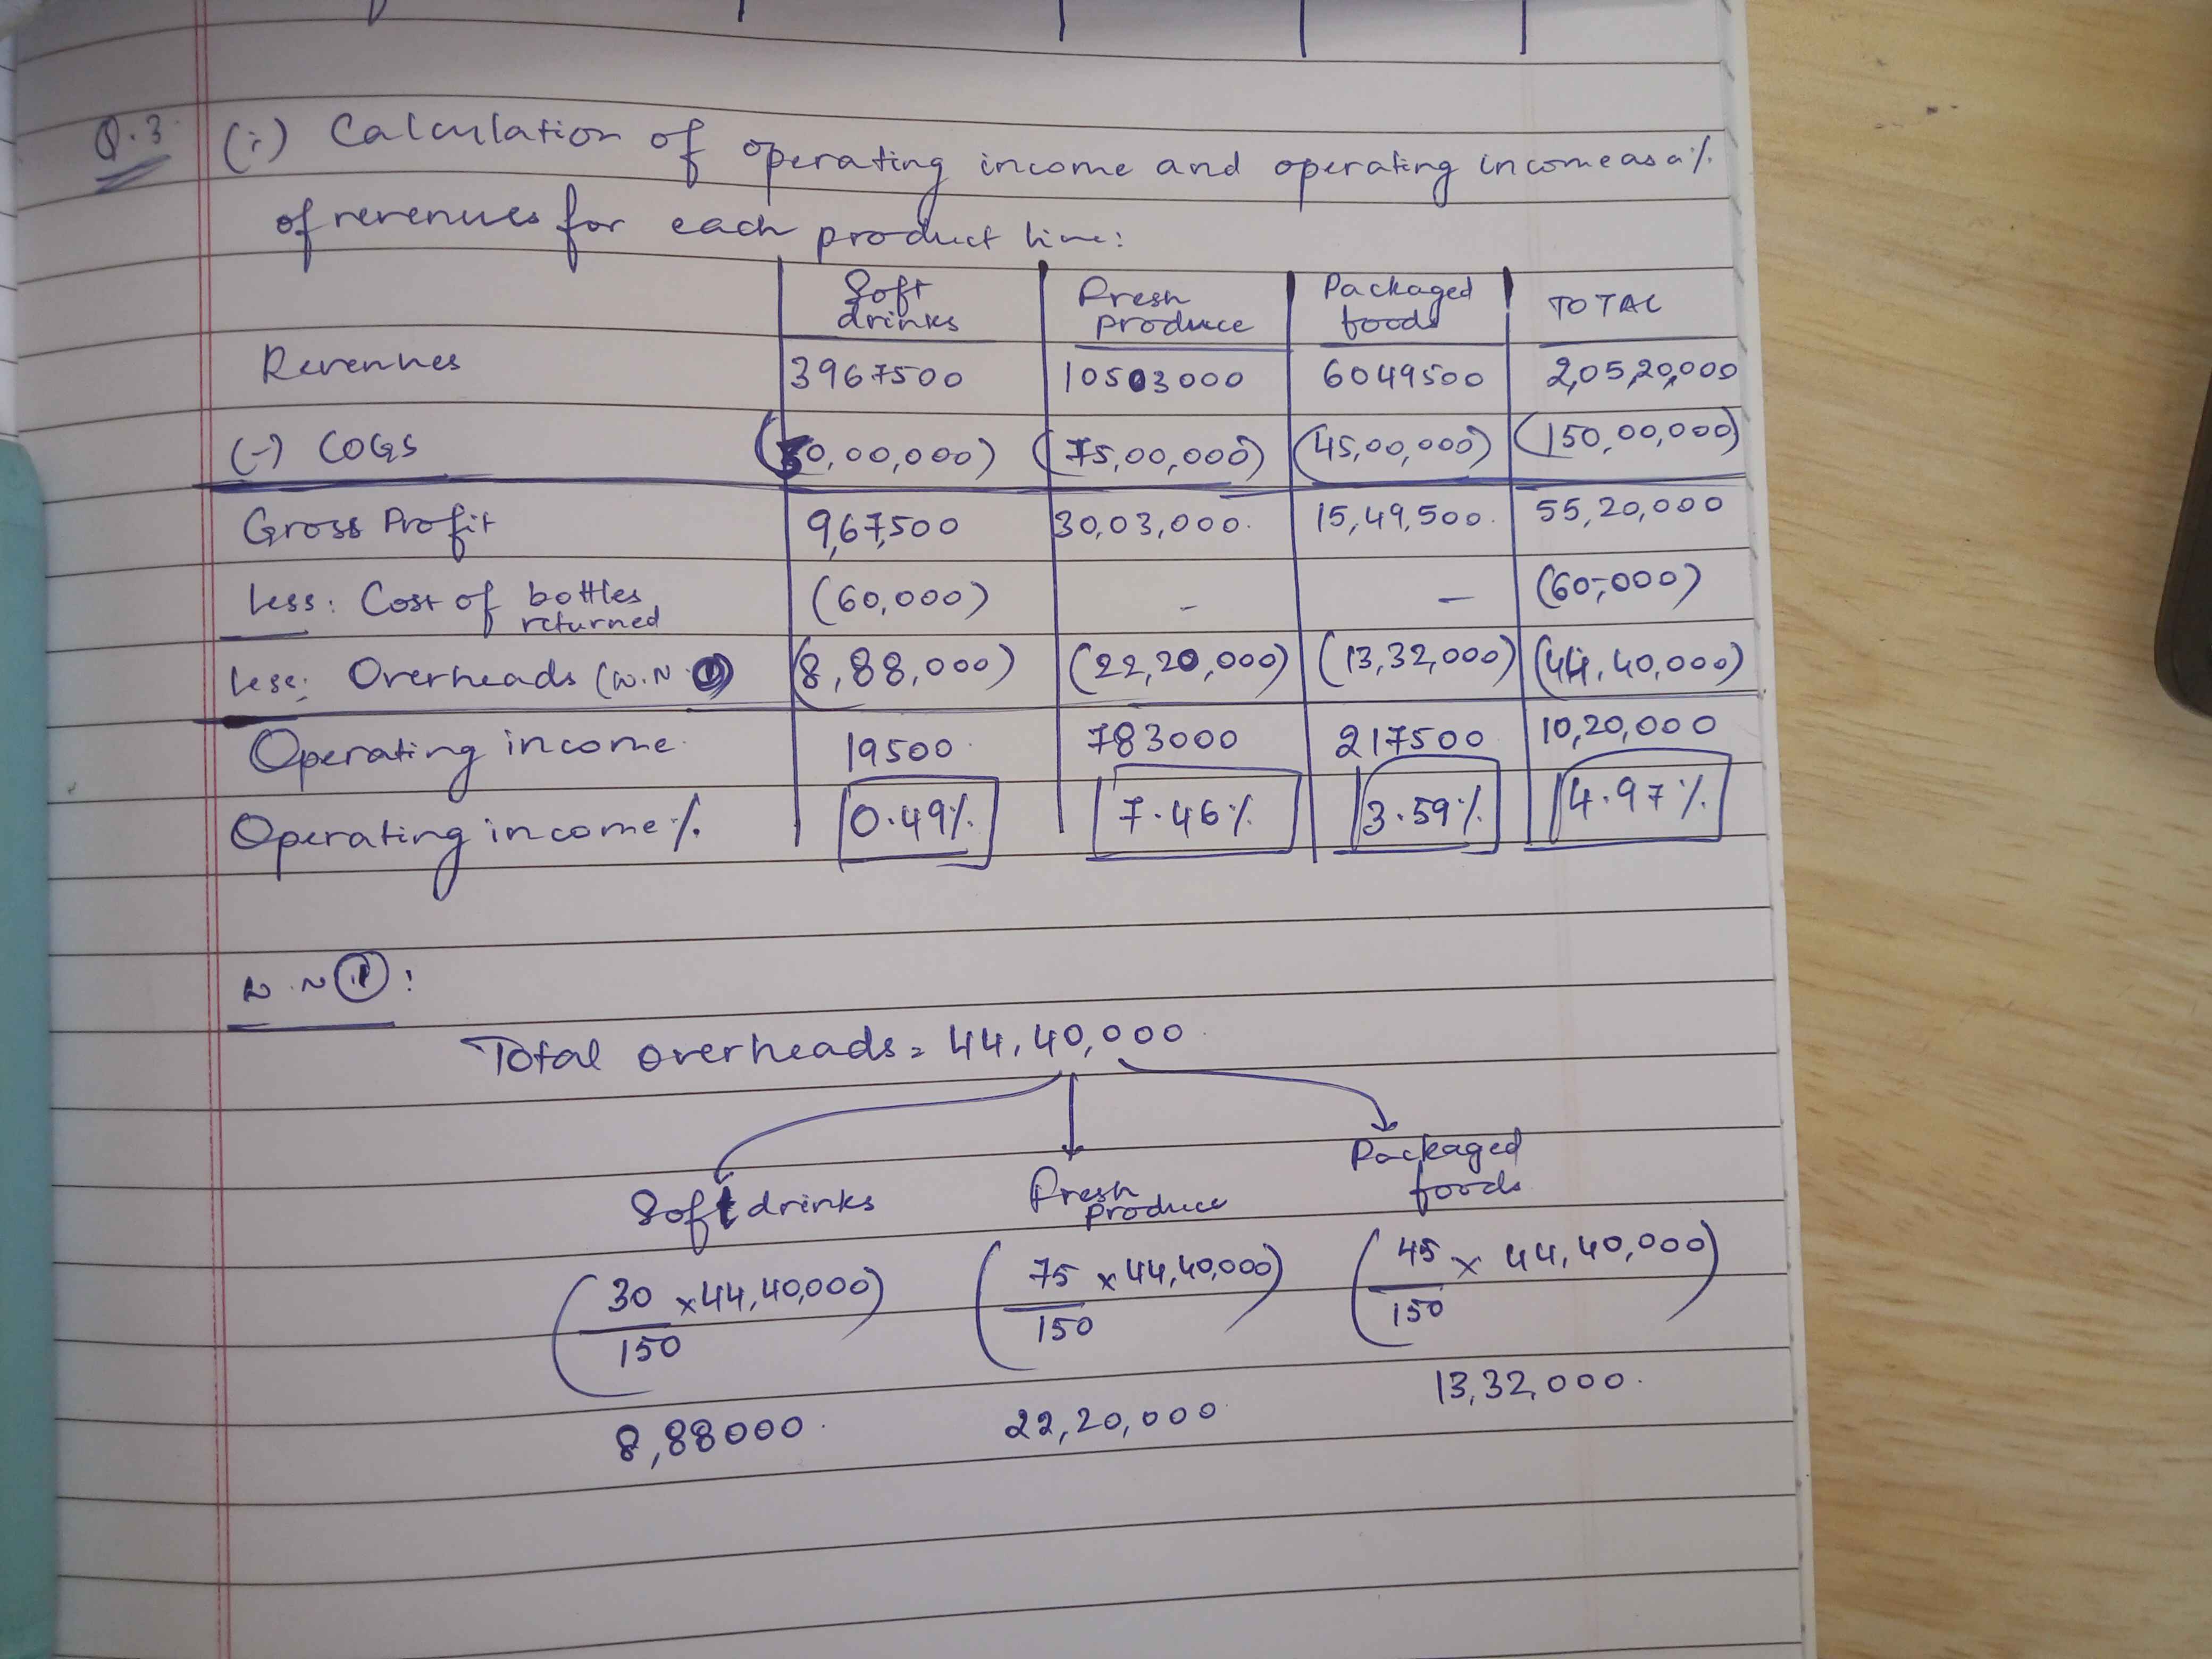 Q.3. (i) Calculation of operating income and operating income as a %
of revenues for each product line:
Soft drinks Fresh produce Packaged foods TOTAL
Revenues 3967500 10503000 6049500 2,05,20,000
(-) COGS (30,00,000) (75,00,000) (45,00,000) (150,00,000)
Gross Profit 9,67,500 30,03,000. 15,49,500. 55,20,000
Less: Cost of bottles returned (60,000) - - (60,000)
Less: Overheads (W.N 1) (8,88,000) (22,20,000) (13,32,000) (44,40,000)
Operating income 19500 783000 217500 10,20,000
Operating income % 0.49% 7.46% 3.59% 4.97%
W.N 1:
Total overheads = 44,40,000
Soft drinks Fresh produce Packaged foods
(30/150 x 44,40,000) (75/150 x 44,40,000) (45/150 x 44,40,000)
8,88000. 22,20,000 13,32,000.